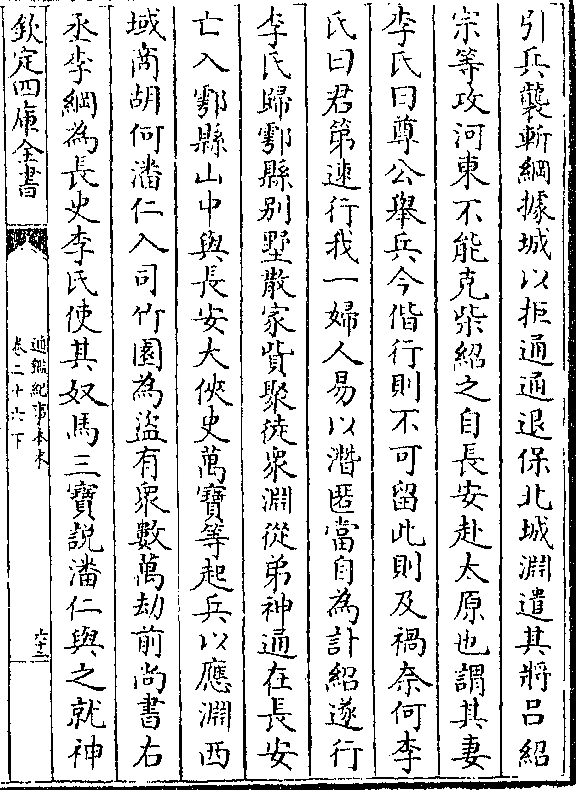 引兵襲斬綱據城以拒通通退保北城淵遣其將吕紹
宗等攻河東不能克柴紹之自長安赴太原也謂其妻
李氏曰尊公舉兵今偕行則不可留此則及禍奈何李
氏曰君第速行我一婦人易以潛匿當自為計紹遂行
李氏歸鄠縣别墅散家貲聚徒衆淵從弟神通在長安
亡入鄠縣山中與長安大俠史萬寶等起兵以應淵西
域商胡何潘仁入司竹園為盜有衆數萬劫前尚書右
丞李綱為長史李氏使其奴馬三寶説潘仁與之就神
欽定四庫全書
通鑑紀事本末
卷二十六下
六十三